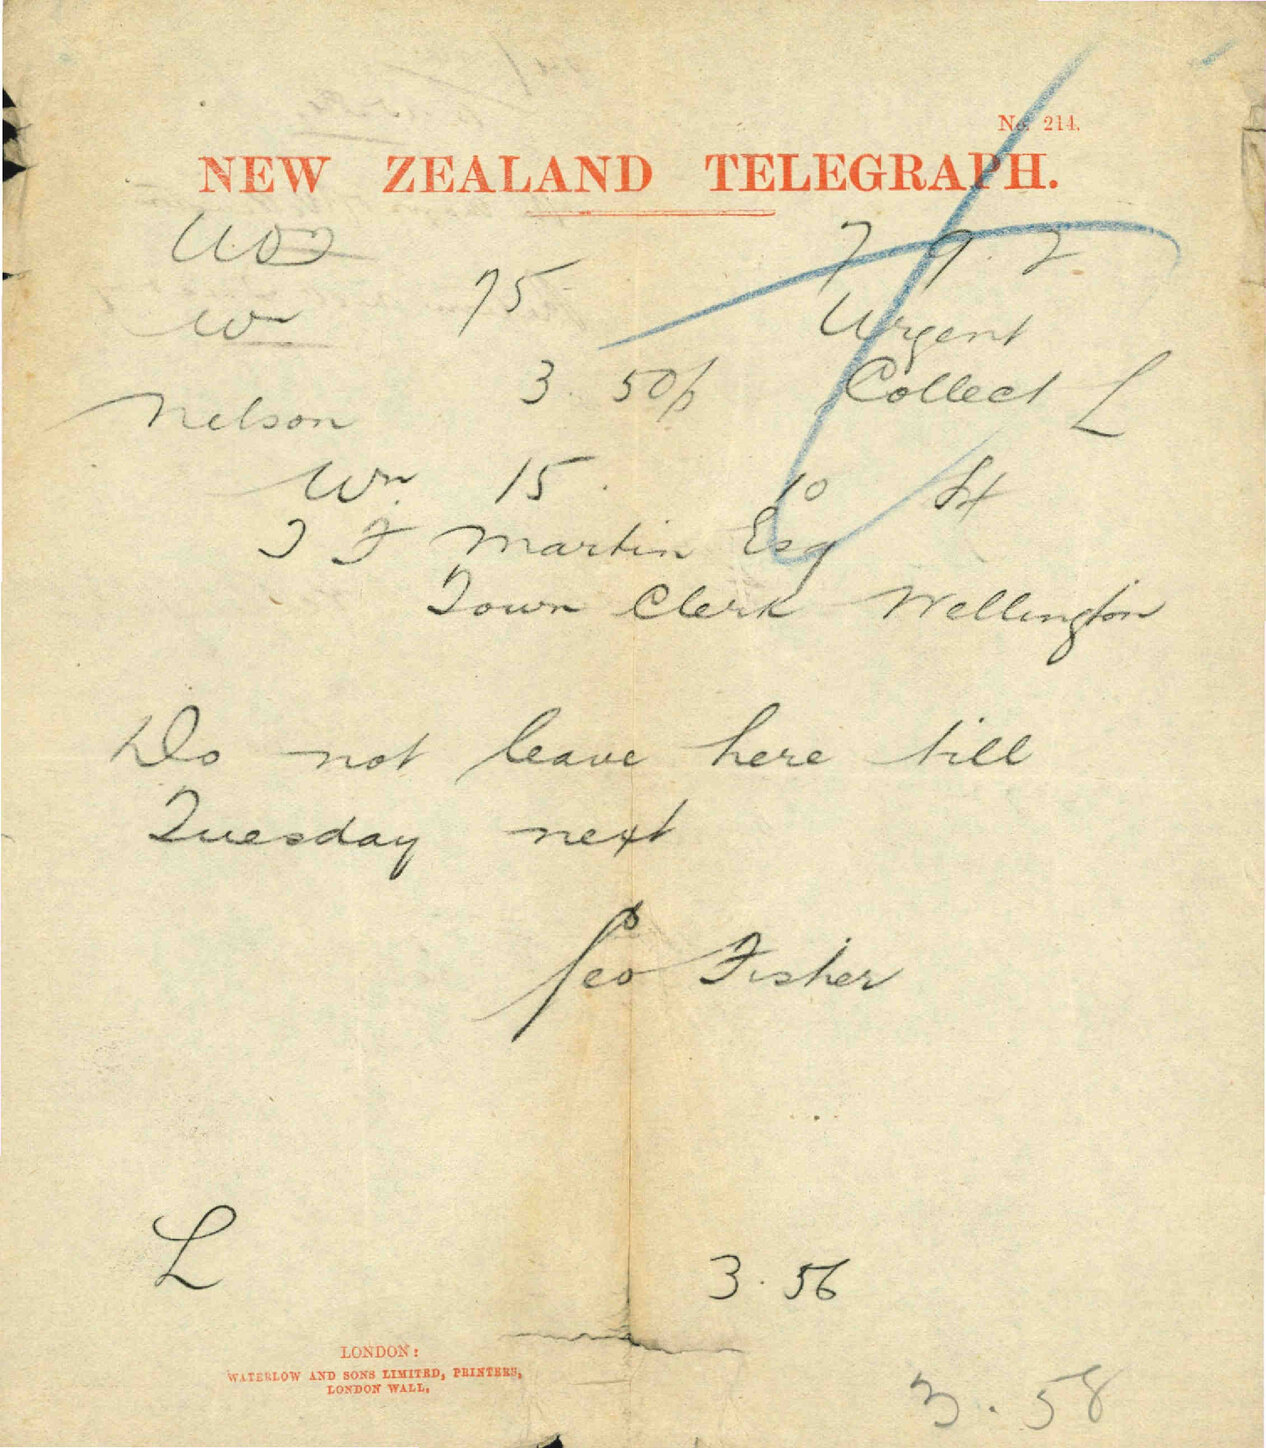 No. 214.
NEW ZEALAND TELEGRAPH.
7 9. 2
Wn 75 Urgent
3. 50p Collect L
Nelson
Wn. 15. 10
T F Martin Esq
Town Clerk Wellington
Do not leave here till
Tuesday next
Geo Fisher
L 3. 56
LONDON:
WATERLOW AND SONS LIMITED, PRINTERS,
LONDON WALL.
3. 58